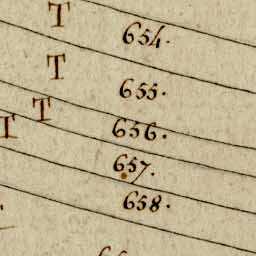 T 654.
T 655.
T 656.
T 657.
658.